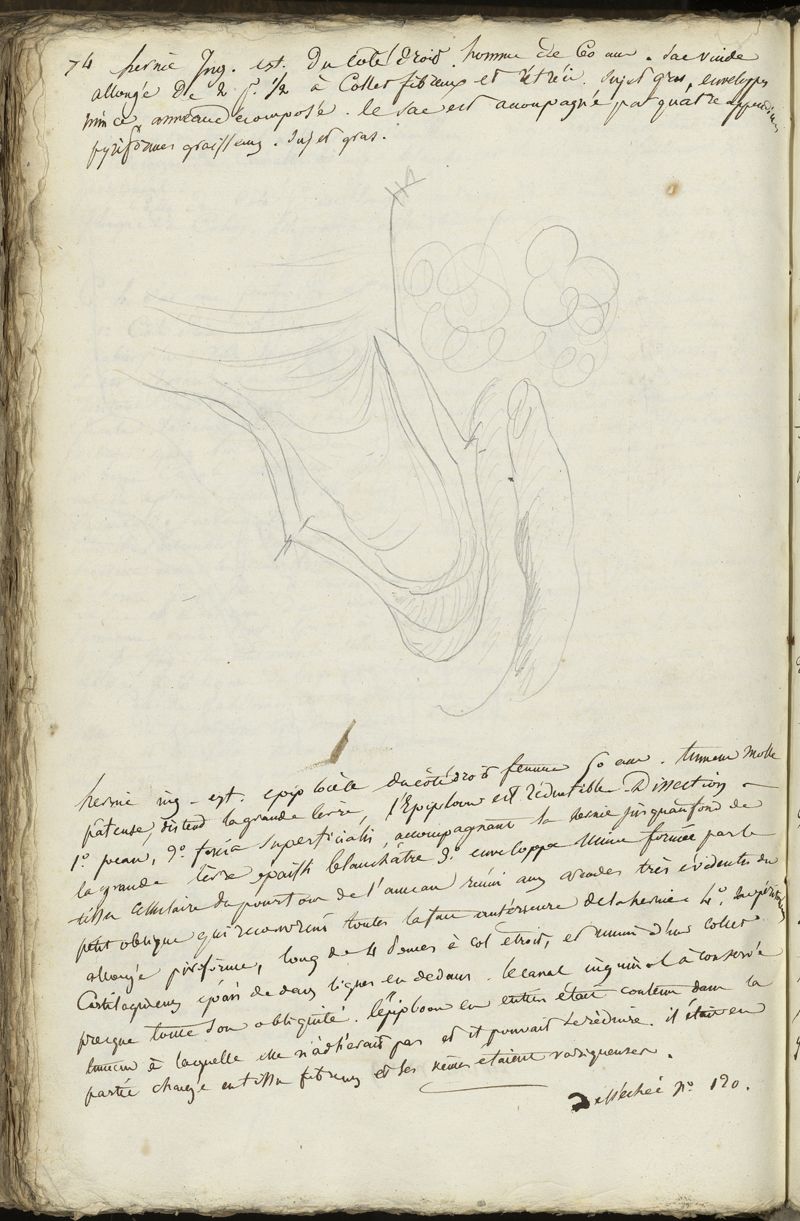 74 hernie Ing. ext. Du coté droit. homme de 60 ans. Sac vuide
allongé De 2 p. ½ à Collet fibreux et rétréci. Sujet gras, enveloppes
mince, anneaux décomposé. le sac est acompagné par quatre appendices
pyriformes graisseux. Sujet gras.
hernie ing. ext. epiplocèle du côté droit femme 50 ans. tumeur Molle
pâteuse, distend la grande lèvre, l'Epiploon est réductible. Dissection
1.º peau, 2.º fascia Superficialis, accompagnant la hernie jusqu'au fond de
la grande lèvre epaissi blanchâtre 3.º enveloppe Mince formée par le
tissu cellulaire du pourtour de l'anneau réuni aux arcades très évidentes du
petit oblique qui recouvrent toutes la face antérieure de la hernie 4.º Sac péritonéal
allongé piriforme, long de 4 à col étroit, et muni d'un collet
Cartilagineux épais de deux lignes en dedans. le canal inguinal à conservée
presque toute Son obliquité. l'épiploon en entier était contenu dans la
tumeur à laquelle elle n'adhérait pas et il pouvait Se réduire. il était en
partie changé en tissu fibreux et Ses veines etaient variqueuses.
Desséchée n.º 120.